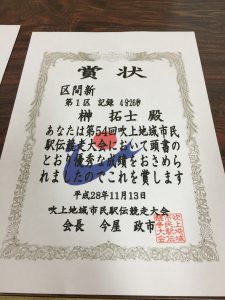 賞状
区間新
第1区 記録 4分26秒
榊 拓士 殿
あなたは第54回吹上地域市民
駅伝競走大会において頭書の
とおり優秀な成績をおさめら
れましたのでこれを賞します
平成28年11月13日
吹上地域市民駅伝競走大会
会長 今屋 政市